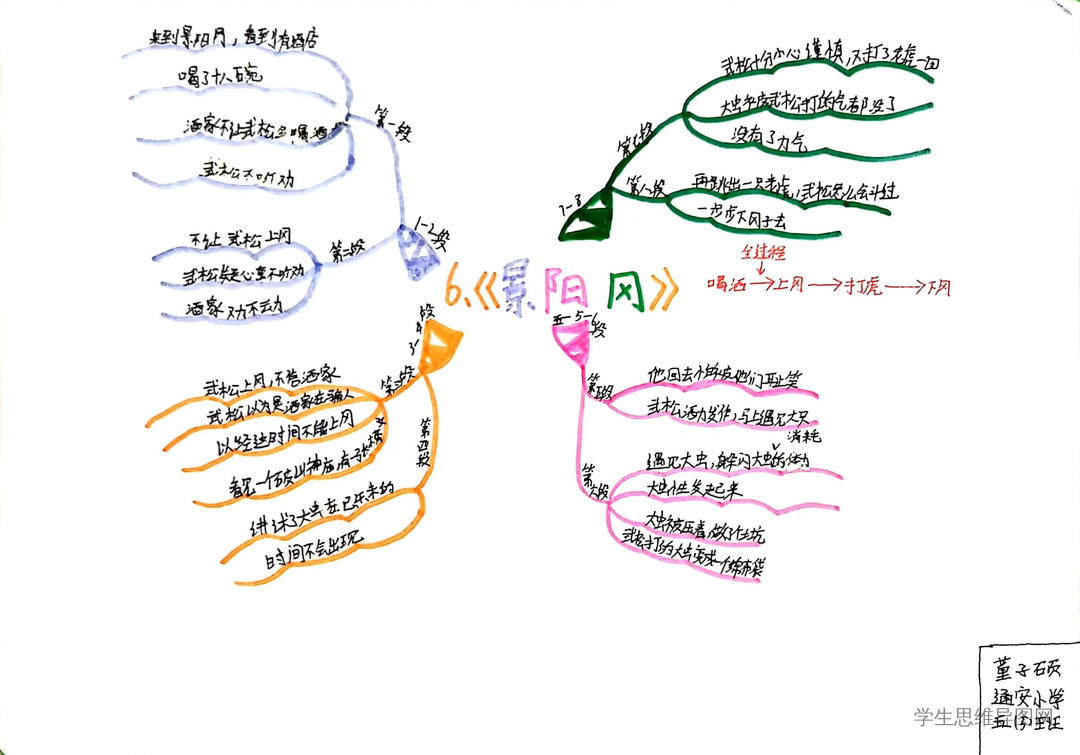 6.《景阳冈》
1-2段
第一段
来到景阳冈，看到有酒店
喝了十八碗
酒家不让武松 喝酒
武松不听劝
第二段
不让武松上冈
武松 心重不听劝
酒家劝不动
3-4段
第三段
武松上冈，不告酒家
武松以为是酒家在骗人
以 时间不能上冈
看见一个破山神庙，有一张榜文
第四段
讲述了大虫在已午未的
时间不会出现
五-5-6段
第五段
他回去 他们耻笑
武松酒力发作，马上遇见大虫
第六段
遇见大虫，躲闪大虫的体力
消耗
大虫性发起来
大虫被压着，做了个土坑
武松打的大虫变成一个锦布袋
7-8
第七段
武松十分小心谨慎，又打了老虎一回
大虫 武松打的气都没了
没有了力气
第八段
再跳出一只老虎，武松怎么会斗过
一步步下冈子去
全过程
喝酒→上冈→打虎→下冈
董子硕
通安小学
五(5)班
学生思维导图网